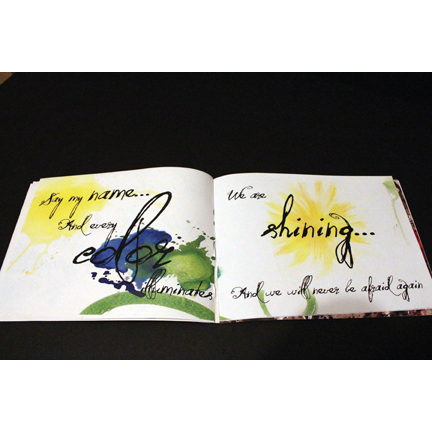 Say my name...
And every
color
illuminates
We are
shining...
And we will never be afraid again